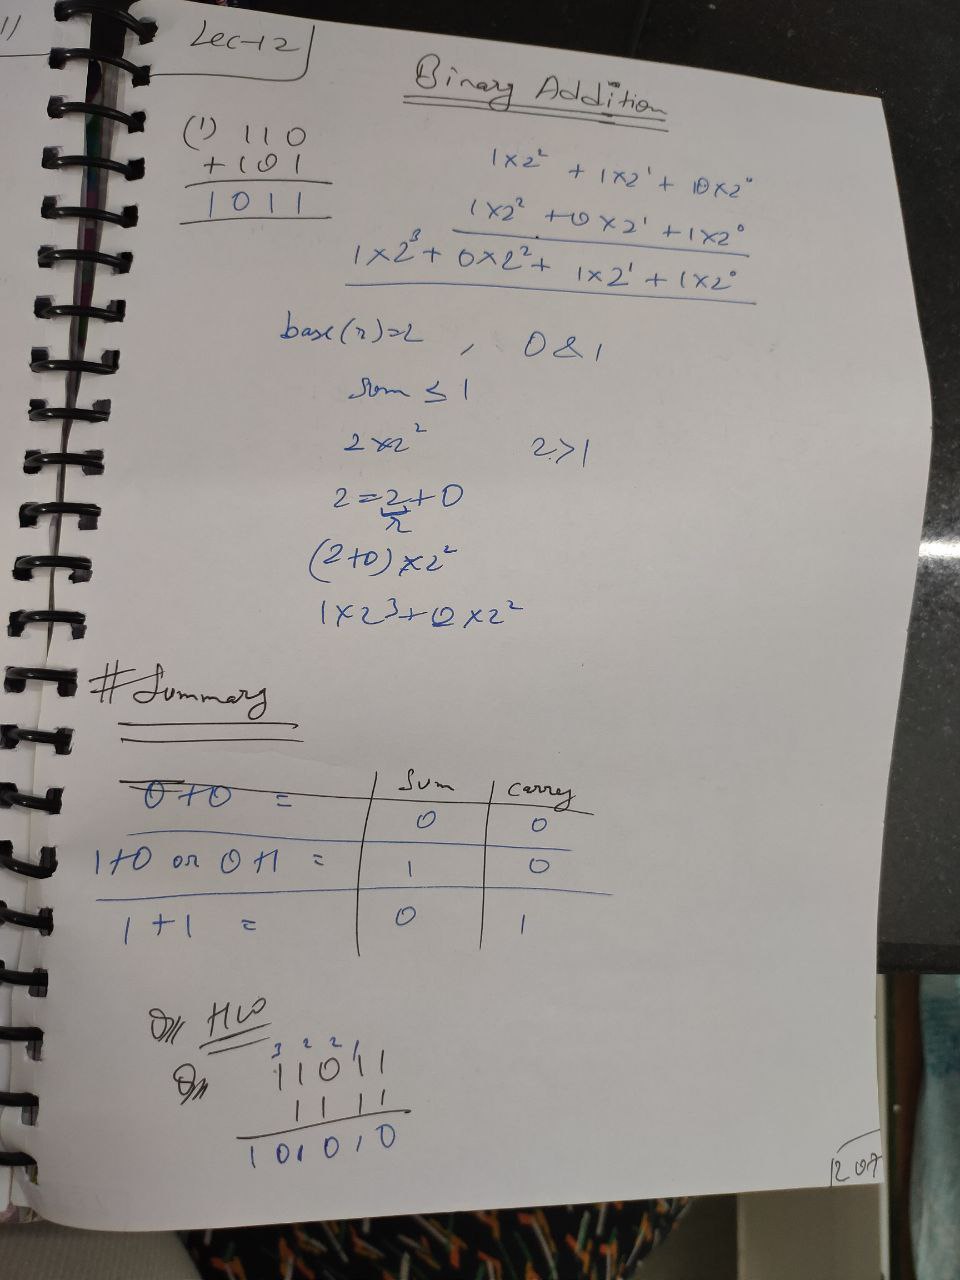 1)
Lec-12
Binary Addition
(1) 110
+101
1011
1×2² + 1×2¹ + 0×2⁰
1×2² + 0×2¹ + 1×2⁰
1×2³ + 0×2² + 1×2¹ + 1×2⁰
base(r)=2 , 0 & 1
Sum ≤ 1
2×2² 2>1
2=2+0
r
(2+0)×2²
1×2³+0×2²
# Summary
Sum Carry
0+0 = 0 0
1+0 or 0+1 = 1 0
1+1 = 0 1
HW
3 2 2 1
11011
1111
101010